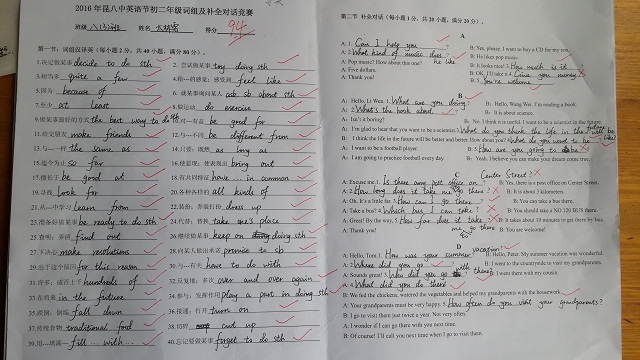 2016年昆八中英语节初二年级词组及补全对话竞赛
班级 姓名 得分 94
第一节：词组汉译英(每小题2分，共40小题，满分80分)。
1.决定做某事 decide to do sth
2. 尝试做某事 try doing sth
3.相当多 quite a few
4.给…的感觉；感受到 feel like
5.因为 because of
6. 就某事询问某人 ask sb about sth
7.至少 at least
8.做运动 do exercise
9.做某事最好的方式 the best way to do sth
10.对…有益 be good for
11.结交朋友 make friends
12.与…不同 be different from
13.与…一样 the same as
14.只要；既然 as long as
15.迄今为止 so far
16.使显现；使表现出 bring out
17.擅长于 be good at
18.有共同特征 have ... in common
19.寻找 look for
20.各种各样的 all kinds of
21.从…中学习 learn from
22.装扮；乔装打扮 dress up
23.准备好做某事 be ready to do sth
24.代替；替换 take one's place
25.查明；弄清 find out
26.继续做某事 keep on doing sth
27.下决心 make resolutions
28.向某人做出承诺 promise to sb
29.出于这个原因 for this reason
30.与…有关 have to do with
31.许多；成百上千 hundreds of
32.反复地；多次 over and over again
33.在将来 in the future
34.参与；发挥作用 play a part in doing sth
35.跌倒；倒塌 fall down
36.接通；打开 turn on
37.传统食物 traditional food
38.切碎 cut up
39.用…填满… fill ... with ...
40.忘记要做某事 forget to do sth
第二节 补全对话(每小题1分，共20小题，满分20分)。
A
A: 1. Can I help you
B: Yes, please. I want to buy a CD for my son.
A: 2. What kind of music does he like
B: He likes pop music.
A: Pop music? How about this one?
B: It looks nice! 3. How much is it
A: Five dollars.
B: OK, I'll take it.
A: Thank you!
B: 5. You're welcome
B
A: Hello, Li Wen. 1. What are you doing
B: Hello, Wang Wei. I'm reading a book.
A: 2. What's the book about
B: It is about science.
A: Isn't it boring?
B: No. I think it is useful. I want to be a scientist in the future.
A: I'm glad to hear that you want to be a scientist. 3. What do you think the life in the future will be like
B: I think the life in the future will be better and better. How about you? What do you want to be
A: I want to be a football player.
B: 5. How are you going to do
A: I am going to practice football every day.
B: Yeah. I believe you can make your dream come true.
C
A: Excuse me. 1. Is there one post office on Center Street?
B: Yes, there is a post office on Center Street.
A: 2. How long does it take me go there?
B: It is about 3 kilometers.
A: Oh. It's a little far. 3. How can I go there
B: You can take a bus.
A: Take a bus? 4. Which bus I can take
B: You should take a NO 120 BUS there.
A: Great! By the way, 5. How far does it take me go there
B: It takes about 30 minutes to get there by bus.
A: Thank you!
B: You are welcome!
D
A: Hello, Tom. 1. How was your summer vacation
B: Hello, Peter. My summer vacation was wonderful.
A: 2. Where did you go
B: I went to the countryside to visit my grandparents.
A: Sounds great! 3. Who did you go with there
B: I went there with my cousin.
A: 4. What did you do there
B: We fed the chickens, watered the vegetables and helped my grandparents with the housework.
A: Your grandparents must be very happy. 5. How often do you visit your grandparents?
B: I go to visit them just twice a year. Not very often.
A: I wonder if I can go there with you next time.
B: Of course! I'll call you next time when I go to visit them.